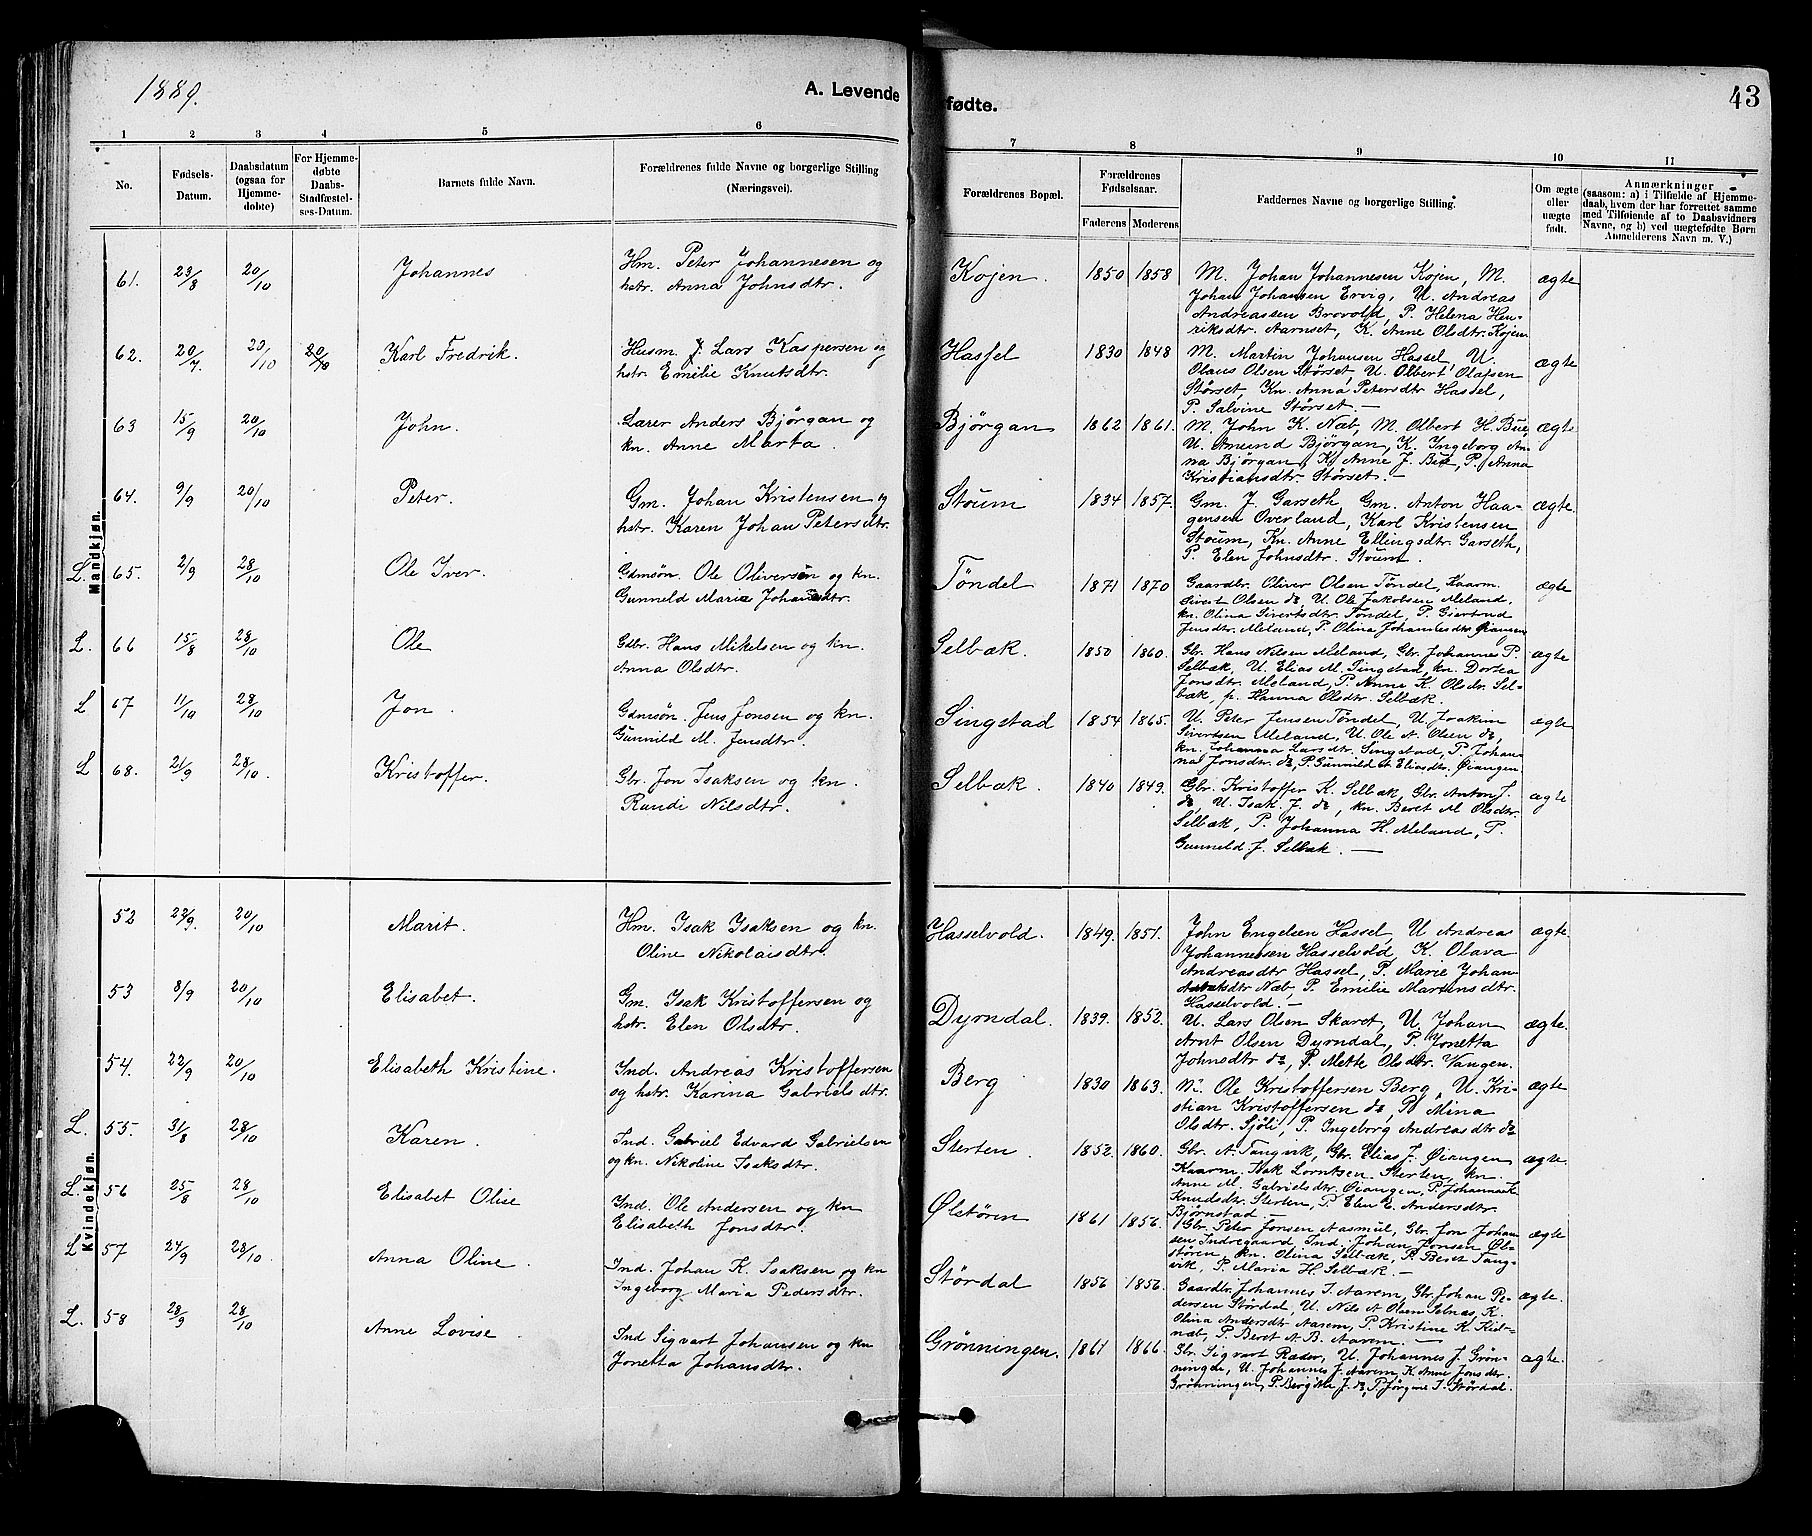 1889.
A. Levende fødte.
43
1 2 3 4 5 6 7 8 9 10 11
No.
Fødsels-Datum.
Daabsdatum (ogsaa for Hjemme-døbte)
For Hjemme-døbte Daabs-Stadfæstel-ses-Datum.
Barnets fulde Navn.
Forældrenes fulde Navne og borgerlige Stilling (Næringsvei).
Forældrenes Bopæl.
Forældrenes Fødselsaar.
Faderens Moderens
Faddernes Navne og borgerlige Stilling.
Om ægte eller uægte født.
Anmærkninger
(saasom: a) i Tilfælde af Hjemme-
daab, hvem der har forrettet samme
med Tilføiende af to Daabsvidners
Navne, og b) ved uægtefødte Børn
Anmelderens Navn m. V.)
Mandkjøn.
61. 23/8 20/10 Johannes
Hm. Peter Johannesen og
hstr. Anna Johnsdtr.
Kojen. 1850 1858
M. Johan Johannesen Kojen, M.
Johan Johansen Ervig, U. Andreas
Andreassen Brovold, P. Helena Hen-
riksdtr. Aarnset, K. Anne Olsdtr. Kojen
ægte
62. 20/7. 20/10 20/10 Karl Fredrik.
Husm. Lars Kaspersen og
hstr. Emilie Knutsdtr.
Hassel 1830 1848
M. Martin Johansen Hassel, U.
Olaus Olsen Størset, U. Olbert Olafsen
Størset, Kn. Anna Petersdtr Hassel,
P. Salvine Størset. —
ægte
63 15/9 20/10 John.
Lærer Anders Bjørgan og
kn. Anne Marta.
Bjørgan 1862 1861.
M. John K. Næb, M. Olbert H. Bue
U. Amund Bjørgan, K. Ingeborg An-
na Bjørgan, K. Anne J. Bue, P. Anna
Kristiansdtr. Størset. —
ægte
64. 9/9 20/10 Peter.
Gm. Johan Kristensen og
hstr. Karen Johan Petersdtr.
Stoum 1834 1857.
Gm. J. Garseth, Gm. Anton Haa-
gensen Overland, Karl Kristensen
Stoum, Kn. Anne Ellingsdtr. Garseth,
P. Elen Johnsdtr. Stoum.
ægte
L. 65. 2/9 28/10 Ole Iver.
Gdmsøn. Ole Oliversen og kn.
Gunneld Maria Johansdtr.
Tøndel 1871 1870
Gaardbr. Oliver Olsen Tøndel, Kaarm.
Sivert Olsen do, U. Ole Jakobsen Meland,
kn. Olina Sivertsdtr. Tøndel, P. Gjertrud
Jensdtr. Meland, P. Olina Johannesdtr Øiangen
ægte
L. 66 15/8 28/10 Ole
Gdbr. Hans Mikelsen og kn.
Anna Olsdtr.
Selbæk. 1850 1860.
Gbr. Hans Nilsen Meland, Gbr. Johannes P.
Selbæk, U. Elias M. Singstad, kn. Dortea
Jonsdtr. Meland, P. Anne K. Olsdtr. Sel-
bæk, p. Hanna Olsdtr. Selbæk.
ægte
L 67 11/10 28/10 Jon.
Gdmsøn. Jens Jonsen og kn.
Gunnild M. Jensdtr.
Singstad 1854 1865.
U. Peter Jensen Tøndel, U. Joakim
Sivertsen Meland, U. Ole A. Olsen do,
kn. Johanna Larsdtr. Singstad, P. Johan-
na Jonsdtr. do, P. Gunnild A Eliasdtr. Øiangen
ægte
L 68. 21/9 28/10. Kristoffer.
Gbr. Jon Isaksen og kn.
Randi Nilsdtr.
Selbæk 1840 1849.
Gbr. Kristoffer K. Selbæk, Gbr. Anton J.
do, U. Isak J. do, kn. Beret M Olsdtr.
Selbæk, P. Johanna H. Meland, P.
Gunneld. J. Selbæk. —
ægte
Kvindekjøn.
52 22/9. 20/10 Marit.
Hm. Isak Isaksen og kn.
Oline Nikolaisdtr.
Hasselvold. 1849. 1851.
John Engelsen Hassel, U Andreas
Johannesen Hasselvold, K. Olava
Andreasdtr Hassel, P. Marie Johan
dtr Næb, P. Emilie Martinsdtr.
Hasselvold. —
ægte.
53 8/9 20/10 Elisabet.
Gm. Isak Kristoffersen og
hstr. Elen Olsdtr.
Dyrndal. 1839. 1852.
U. Lars Olsen Skaret, U. Johan
Arnt Olsen Dyrndal, P. Jonetta
Johnsdtr do, P. Mette Olsdtr. Vangen.
ægte.
54. 22/9 20/10 Elisabeth Kristine.
Ind. Andreas Kristoffersen
og hstr. Karina Gabrielsdtr.
Berg 1830 1863.
M. Ole Kristoffersen Berg, U. Kri-
stian Kristoffersen do, P. Mina
Olsdtr. Sjøli, P. Ingeborg Andreasdtr do
ægte
L. 55. 31/8 28/10 Karen.
Ind. Gabriel Edvard Gabrielsen
og kn. Nikoline Isaksdtr.
Sterten. 1852. 1860.
Gbr. A. Tangvik, Gbr. Elias J. Øiangen
Kaarm. Isak Lorntsen Sterten, kn.
Anne M. Gabrielsdtr. Øiangen, P. Johanna K
Knudsdtr. Sterten, P. Elen E. Andersdtr.
Bjørnstad. —
ægte.
L. 56 25/8 28/10 Elisabet Olise
Ind. Ole Andersen og kn
Elisabeth Jonsdtr.
Ølstøren 1861 1856.
Gbr. Peter Jonsen Aasmul, Gbr. Jon Johan
sen Indregaard Ind. Johan Jonsen Øl-
støren, kn. Olina Selbæk, P. Beret Tang-
vik, P. Maria H. Selbæk. —
ægte
L 57 24/9 28/10. Anna Oline.
Ind. Johan K. Isaksen og kn
Ingeborg Maria Pedersdtr.
Størdal 1856 1856.
Gaardbr. Johannes J. Aarem, Gbr. Johan Pe-
dersen Størdal, U. Nils A Olsen Selnæs, K.
Olina Andersdtr Aarem, P Kristine K. Kiel-
næb, P. Beret A. B. Aarem. —
ægte.
L. 58 28/9 28/10 Anne Lovise.
Ind Sigvart Johansen og kn
Jonetta Johansdtr.
Grønningen. 1861 1866.
Gbr. Sigvart Ræder, U. Johannes J. Grøn-
ningen, U. Johannes J. Aarem, K. Anne Jonsdtr.
Grønningen, P. Bergitte J. do, P. Jørgine J. Størdal.
ægte.